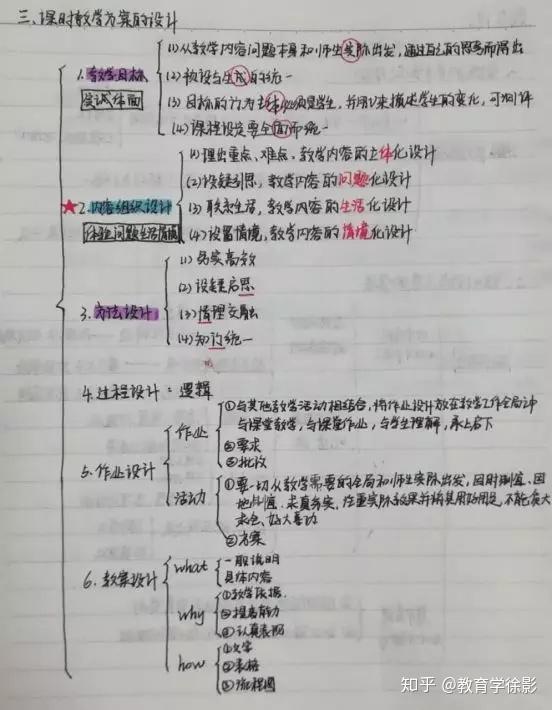 三、课时教学方案的设计
1. 教学目标
实试体面
(1)从教学内容问题本身和师生实际出发，通过自己的思考而得出
(2)预设与生成的统一
(3)目标的行为主体必须是学生，并用以来描述学生的变化，可测评
(4)课程设定要全面而统一
★2.内容组织设计
体验问题生活情境
(1)理出重点、难点，教学内容的立体化设计
(2)设疑引思，教学内容的问题化设计
(3)联系生活，教学内容的生活化设计
(4)设置情境，教学内容的情境化设计
3.方法设计
(1)务实高效
(2)设疑启思
(3)情理交融
(4)知行统一
4.过程设计：逻辑
5.作业设计
作业
①与其他教学活动相结合，将作业设计放在教学工作全局中
与课堂教学，与课堂作业，与学生理解，承上启下
②要求
③批改
活动
①要一切从教学需要的全局和师生实际出发，因时制宜、因
地制宜、求真务实，注重实际效果并将其用好用足，不能贪大
求全、好大喜功
②方案
6.教案设计
what
一般说明
具体内容
why
①教学依据
②提者能力
③认真表现
how
①文字
②表格
③流程图
知乎 @教育学徐影